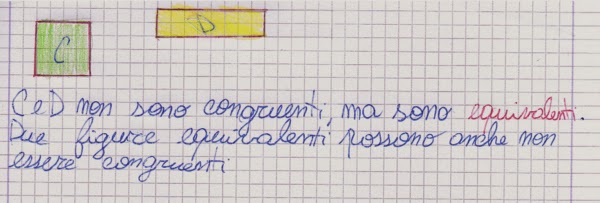 C D
C e D non sono congruenti, ma sono equivalenti.
Due figure equivalenti possono anche non
essere congruenti